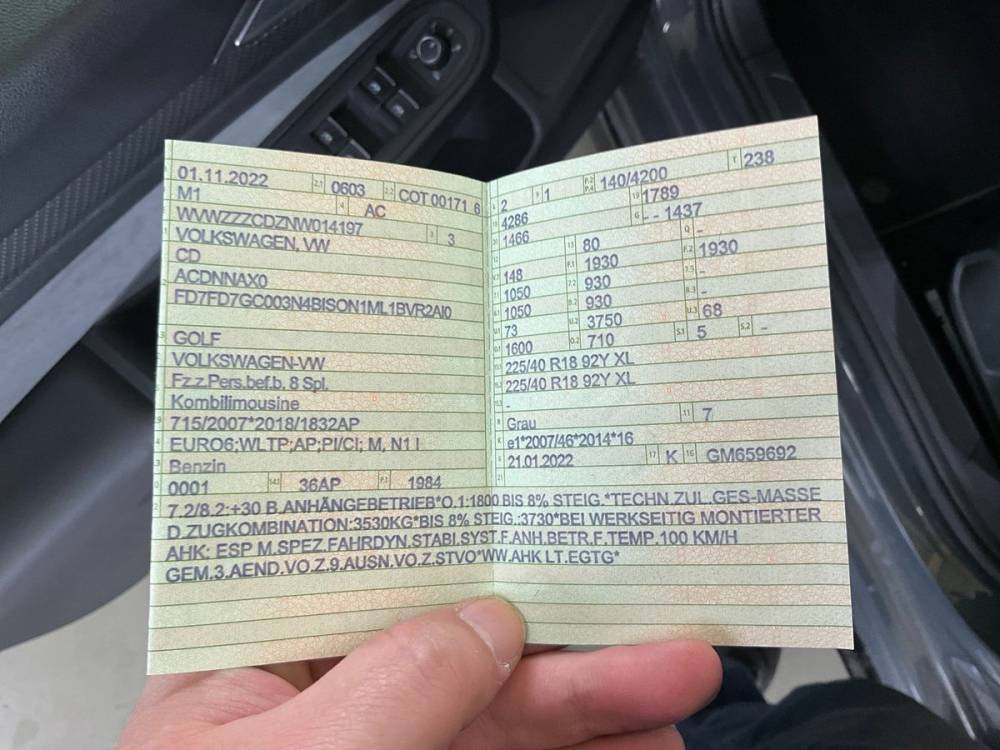 01.11.2022 2.1 0603 2.2 COT 00171 6
M1 4 AC
WVWZZZCDZNW014197 3 3
VOLKSWAGEN, VW
CD
ACDNNAX0
FD7FD7GC003N4BISON1ML1BVR2AI0
GOLF
VOLKSWAGEN-VW
Fz.z.Pers.bef.b. 8 Spl.
Kombilimousine
715/2007*2018/1832AP
EURO6;WLTP;AP;PI/CI; M, N1 I
Benzin
0001 14.1 36AP P.1 1984
2 9 1 P.2 P.4 140/4200 T 238
4286 19 1789
1466 G - - 1437
13 80 Q -
148 F.1 1930 F.2 1930
1050 7.2 930 7.3 -
1050 8.2 930 8.3 -
73 U.2 3750 U.3 68
1600 O.2 710 S.1 5 S.2 -
225/40 R18 92Y XL
225/40 R18 92Y XL
-
Grau 11 7
e1*2007/46*2014*16
21.01.2022 17 K 16 GM659692
7.2/8.2:+30 B.ANHÄNGEBETRIEB*O.1:1800 BIS 8% STEIG.*TECHN.ZUL.GES-MASSE
D.ZUGKOMBINATION:3530KG*BIS 8% STEIG.:3730*BEI WERKSEITIG MONTIERTER
AHK: ESP M.SPEZ.FAHRDYN.STABI.SYST.F.ANH.BETR.F.TEMP.100 KM/H
GEM.3.AEND.VO.Z.9.AUSN.VO.Z.STVO*WW.AHK LT.EGTG*